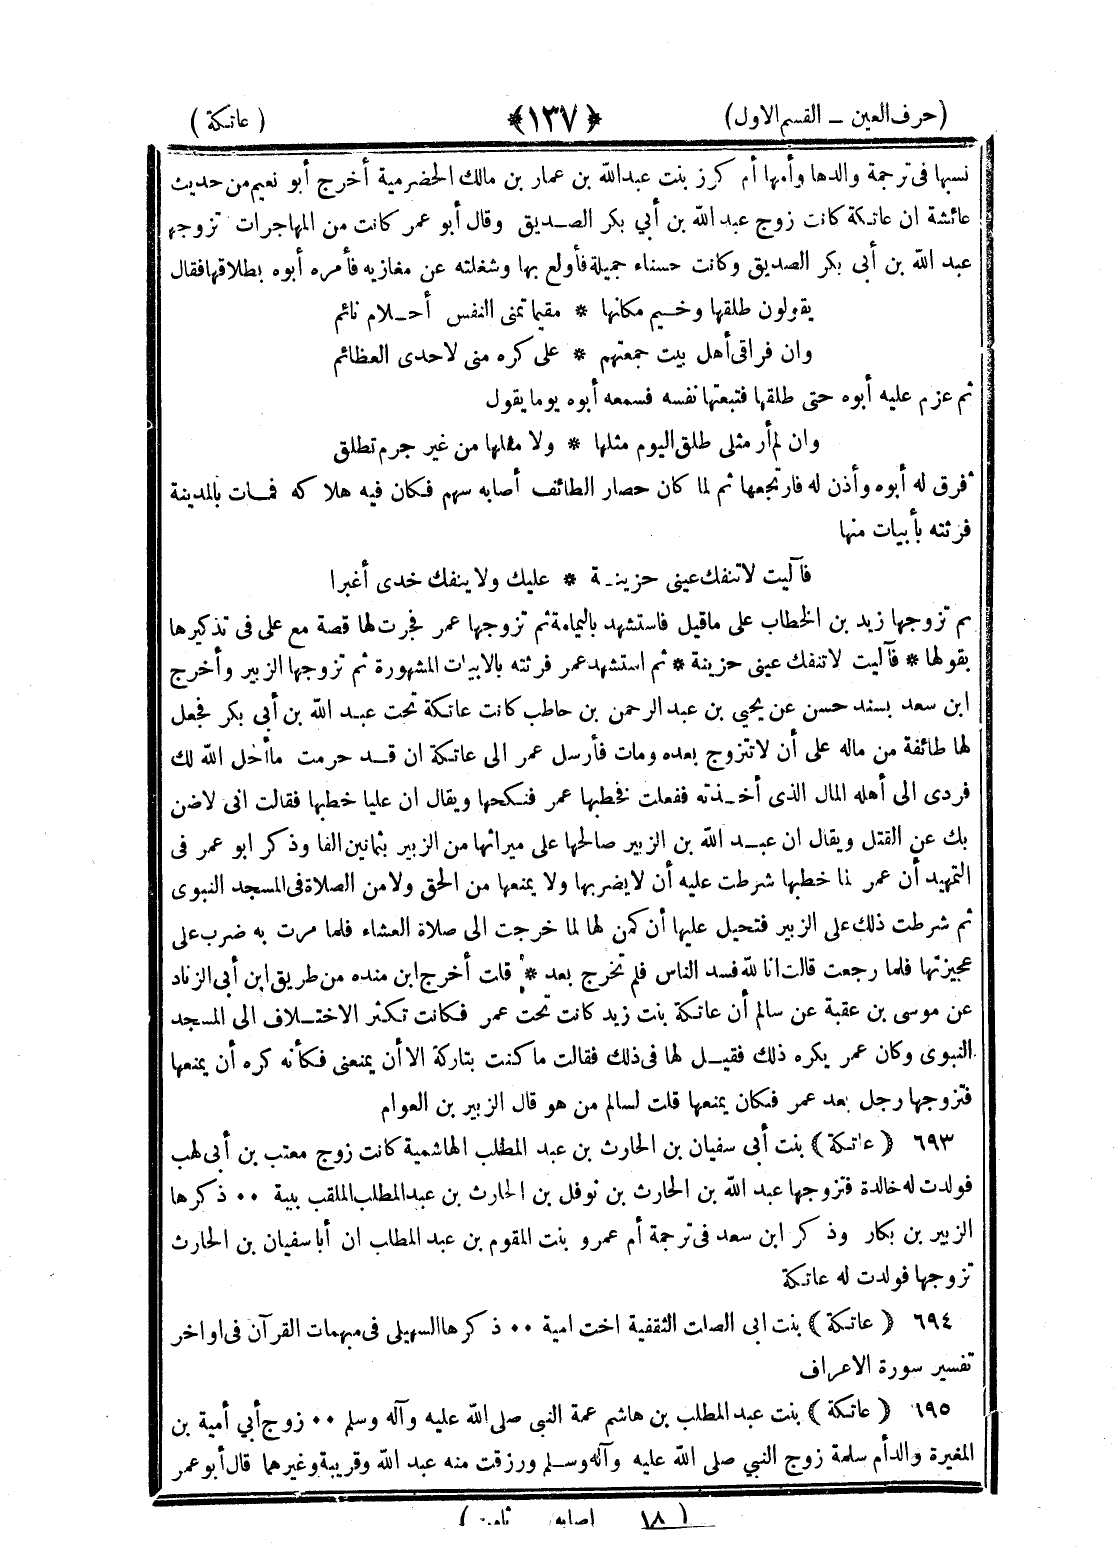 (حرف العين ــ القسم الاول) ﴿١٣٧﴾ (عاتكة)
نسبها فى ترجمة والدها وأمها أم كرز بنت عبدالله بن عمار بن مالك الحضرمية أخرج أبو نعيم من حديث
عائشة ان عاتكة كانت زوج عبد الله بن أبي بكر الصديق وقال أبو عمر كانت من المهاجرات تزوجها
عبد الله بن أبى بكر الصديق وكانت حسناء جميلة فأولع بها وشغلته عن مغازيه فأمره أبوه بطلاقها فقال
يقولون طلقها وخيم مكانها * مقيما تمنى النفس أحلام نائم
وان فراقى أهل بيت جمعتهم * على كره منى لاحدى العظائم
ثم عزم عليه أبوه حتى طلقها فتبعتها نفسه فسمعه أبوه يوما يقول
وان لم أر مثلى طلق اليوم مثلها * ولا مثلها من غير جرم تطلق
فرق له أبوه وأذن له فارتجعها ثم لما كان حصار الطائف أصابه سهم فكان فيه هلا كه فمات بالمدينة
فرثته بأبيات منها
فآليت لا تنفك عينى حزينة * عليك ولا ينفك خدى أغبرا
ثم تزوجها زيد بن الخطاب على ماقيل فاستشهد باليمامة ثم تزوجها عمر فجرت لها قصة مع على فى تذكيرها
بقولها * فآليت لا تنفك عينى حزينة * ثم استشهد عمر فرثته بالابيات المشهورة ثم تزوجها الزبير وأخرج
ابن سعد بسند حسن عن يحيي بن عبد الرحمن بن حاطب كانت عاتكة تحت عبد الله بن أبى بكر فجعل
لها طائفة من ماله على أن لا تتزوج بعده ومات فأرسل عمر الى عاتكة ان قد حرمت ماأحل الله لك
فردى الى أهله المال الذى أخذته ففعلت فخطبها عمر فنكحها ويقال ان عليا خطبها فقالت انى لاضن
بك عن القتل ويقال ان عبد الله بن الزبير صالحها على ميراثها من الزبير بثمانين الفا وذكر ابو عمر فى
التمهيد أن عمر لما خطبها شرطت عليه أن لا يضربها ولا يمنعها من الحق ولامن الصلاة فى المسجد النبوى
ثم شرطت ذلك على الزبير فتحيل عليها أن كمن لها لما خرجت الى صلاة العشاء فلما مرت به ضرب على
عجيزتها فلما رجعت قالت انا لله فسد الناس فلم تخرج بعد * قلت أخرج ابن منده من طريق ابن أبى الزناد
عن موسى بن عقبة عن سالم أن عاتكة بنت زيد كانت تحت عمر فكانت تكثر الاختلاف الى المسجد
النبوى وكان عمر يكره ذلك فقيل لها فى ذلك فقالت ما كنت بتاركة الا أن يمنعنى فكأنه كره أن يمنعها
فتزوجها رجل بعد عمر فكان يمنعها قلت لسالم من هو قال الزبير بن العوام
٦٩٣ ﴿عاتكة﴾ بنت أبى سفيان بن الحارث بن عبد المطلب الهاشمية كانت زوج معتب بن أبى لهب
فولدت له خالدة فتزوجها عبد الله بن الحارث بن نوفل بن الحارث بن عبدالمطلب الملقب ببة ٠٠ ذكرها
الزبير بن بكار وذكر ابن سعد فى ترجمة أم عمرو بنت المقوم بن عبد المطلب ان أبا سفيان بن الحارث
تزوجها فولدت له عاتكة
٦٩٤ ﴿عاتكة﴾ بنت ابى الصات الثقفية اخت امية ٠٠ ذكرها السهيلى فى مبهمات القرآن فى اواخر
تفسير سورة الاعراف
٦٩٥ ﴿عاتكة﴾ بنت عبد المطلب بن هاشم عمة النبى صلى الله عليه وآله وسلم ٠٠ زوج أبي أمية بن
المغيرة والد أم سلمة زوج النبي صلى الله عليه وآله وسلم ورزقت منه عبد الله وقريبة وغيرهما قال أبو عمر
(١٨ اصابه ثامن)